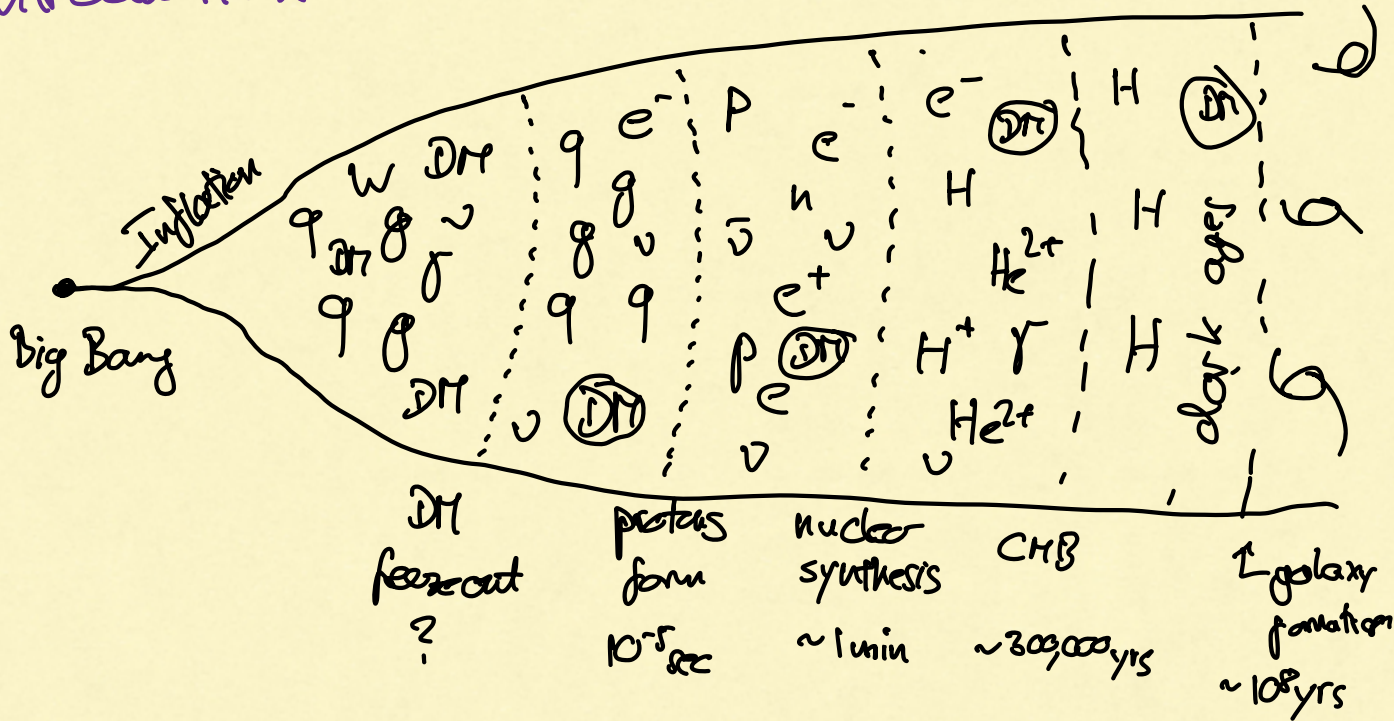 Inflation
Big Bang
W DM
q g ν
DM γ
q g
DM
q e⁻
g
g ν
q q
ν DM
p e⁻
n
ν̄ ν
e⁺
p DM
e
ν
e⁻ DM
H
He²⁺
H⁺ γ
He²⁺
ν
H DM
H
H
dark ages
DM
freezeout
?
protons
form
10⁻⁵ sec
nucleo
synthesis
~ 1 min
CMB
~300,000 yrs
↑ galaxy
formation
~ 10⁸ yrs